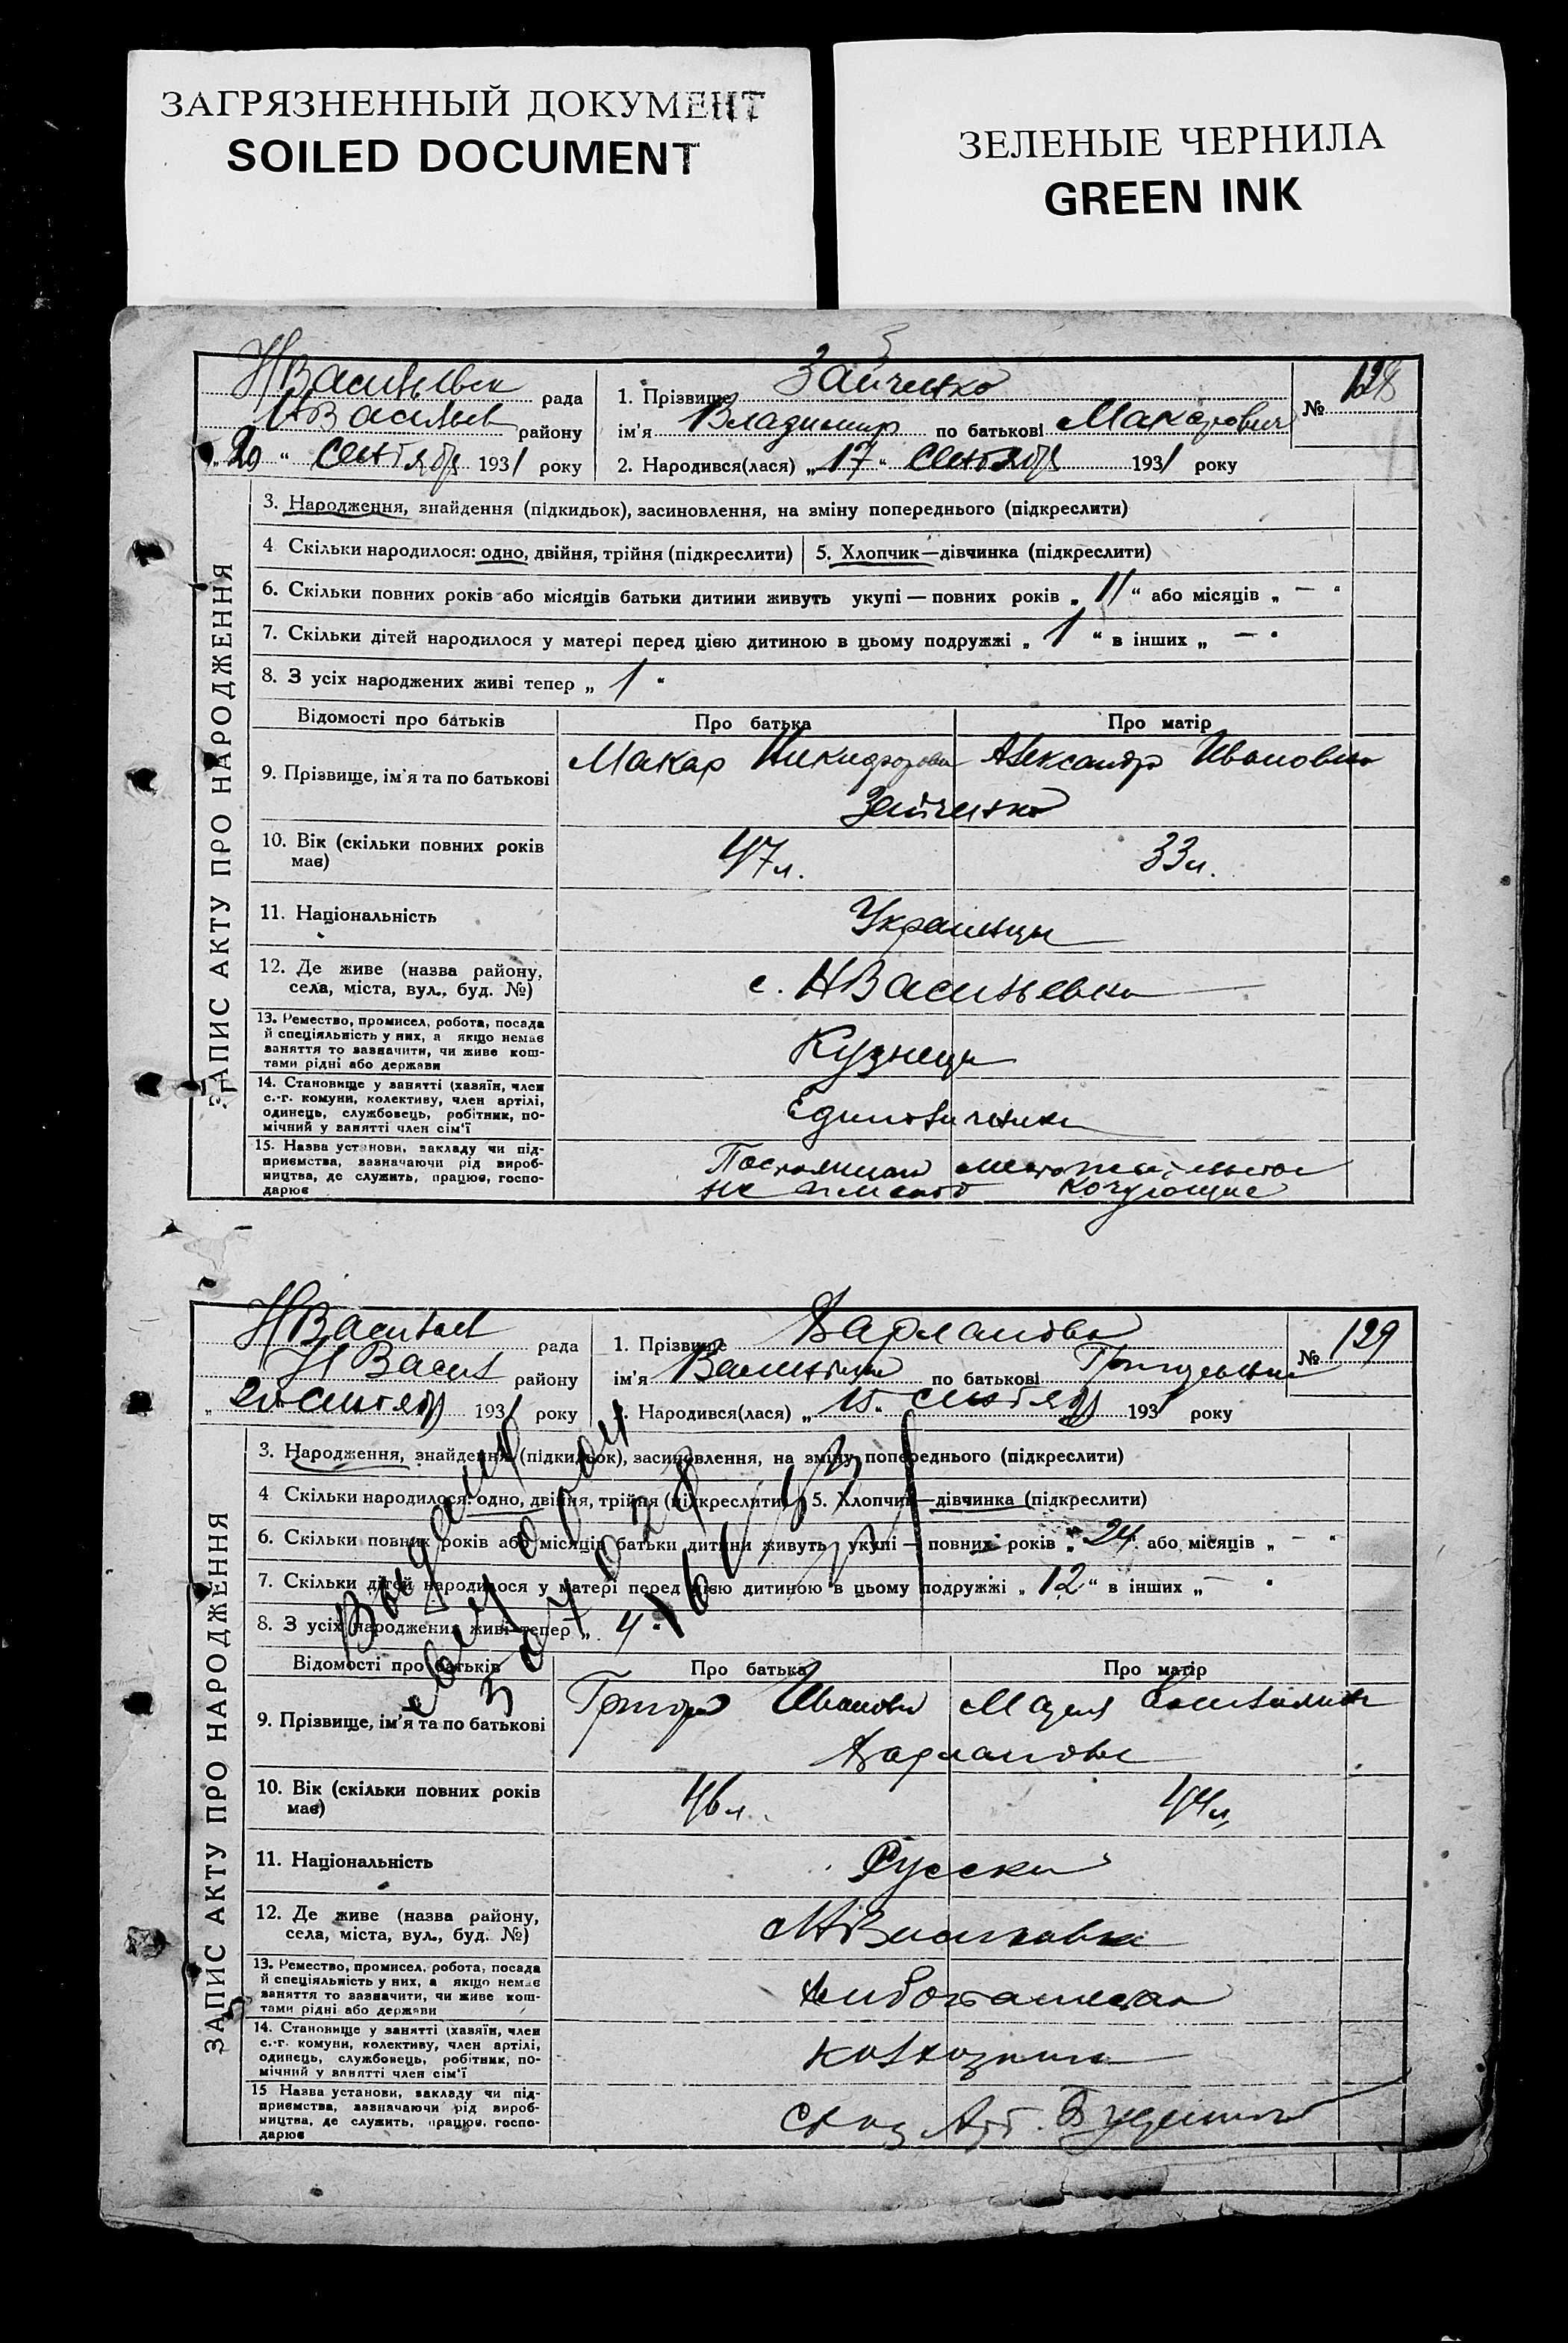 ЗАГРЯЗНЕННЫЙ ДОКУМЕНТ
SOILED DOCUMENT
ЗЕЛЕНЫЕ ЧЕРНИЛА
GREEN INK
ЗАПИС АКТУ ПРО НАРОДЖЕННЯ
НВасильевск рада
НВасильев району
„20“ Сентября 1931 року
1. Прізвище Зайченко
ім'я Владимир по батькові Макарович
№ 128
2. Народився(лася) „17“ Сентября 1931 року
3. Народження, знайдення (підкидьок), засиновлення, на зміну попереднього (підкреслити)
4 Скільки народилося: одно, двійня, трійня (підкреслити) 5. Хлопчик—дівчинка (підкреслити)
6. Скільки повних років або місяців батьки дитини живуть укупі — повних років „11“ або місяців „—“
7. Скільки дітей народилося у матері перед цією дитиною в цьому подружжі „1“ в інших „—“
8. З усіх народжених живі тепер „1“
Відомості про батьків Про батька Про матір
9. Прізвище, ім'я та по батькові Макар Никифорович Александра Ивановна
Зайченко
10. Вік (скільки повних років
має) 47 л. 33 л.
11. Національність Украинцы
12. Де живе (назва району,
села, міста, вул., буд. №) с. НВасильевка
13. Ремество, промисел, робота, посада
й спеціяльність у них, а якщо немає
заняття то зазначити, чи живе кош-
тами рідні або держави Кузнецы
14. Становище у занятті (хазяїн, член
с.-г. комуни, колективу, член артілі,
одинець, службовець, робітник, по-
мічний у занятті член сім'ї
15. Назва установи, закладу чи під-
приємства, зазначаючи рід вироб-
ництва, де служить, працює, госпо-
дарює
не кочующие
ЗАПИС АКТУ ПРО НАРОДЖЕННЯ
НВасильев рада
Н Васил району
„20 Сентября 1931 року
1. Прізвище Варламова
ім'я Валентина по батькові Григорьевна
№ 129
2. Народився(лася) „15“ Сентября 1931 року
3. Народження, знайдення (підкидьок), засиновлення, на зміну попереднього (підкреслити)
4 Скільки народилося: одно, двійня, трійня (підкреслити) 5. Хлопчик—дівчинка (підкреслити)
6. Скільки повних років або місяців батьки дитини живуть укупі — повних років „24“ або місяців „—“
7. Скільки дітей народилося у матері перед цією дитиною в цьому подружжі „12“ в інших „—“
8. З усіх народжених живі тепер „4“
Відомості про батьків Про батька Про матір
9. Прізвище, ім'я та по батькові Григор Иванович Мария
Варламовы
10. Вік (скільки повних років
має) 46 л. 44 л.
11. Національність Русски
12. Де живе (назва району,
села, міста, вул., буд. №)
13. Ремество, промисел, робота, посада
й спеціяльність у них, а якщо немає
заняття то зазначити, чи живе кош-
тами рідні або держави
14. Становище у занятті (хазяїн, член
с.-г. комуни, колективу, член артілі,
одинець, службовець, робітник, по-
мічний у занятті член сім'ї колхозники
15 Назва установи, закладу чи під-
приємства, зазначаючи рід вироб-
ництва, де служить, працює, госпо-
дарює Арт. Буденного